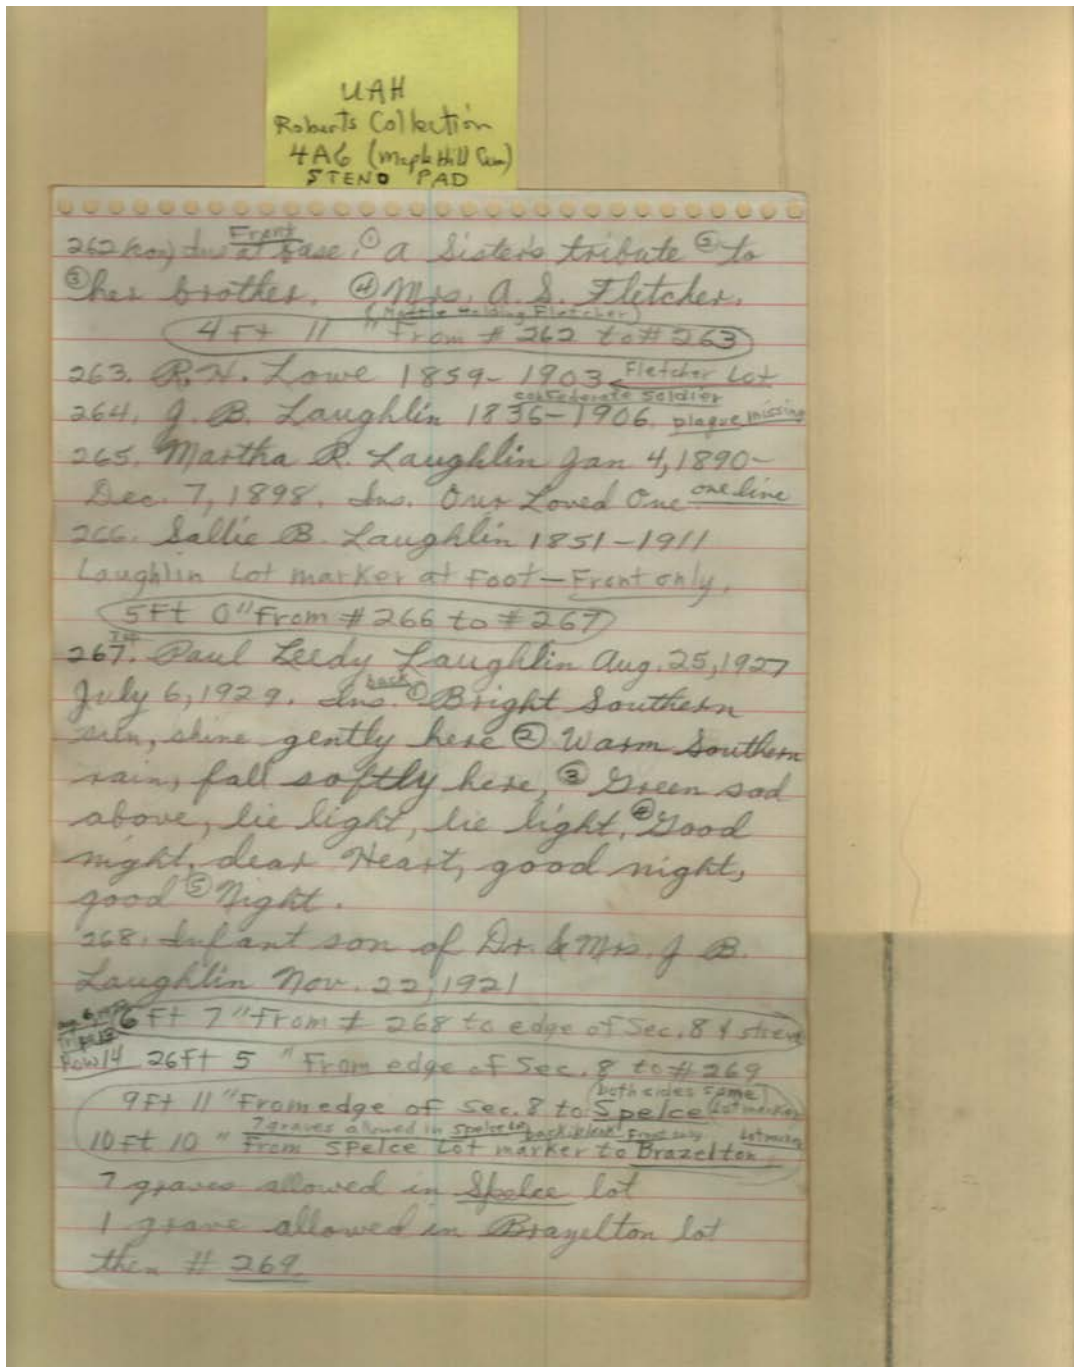 UAH
Roberts Collection
4A6 (Maple Hill Cem)
STENO PAD
262 (con) Ins Front at base. ① A Sister's tribute ② to
③ her brother. ④ Mrs. A. S. Fletcher.
(Mattie Fletcher)
4 Ft 11 " From # 262 to # 263
263. R. H. Lowe 1859-1903 Fletcher Lot
confederate soldier
264. J. B. Laughlin 1836-1906. plaque missing
265. Martha R. Laughlin Jan 4, 1890-
Dec. 7, 1898. Ins. Our Loved One one line
266. Sallie B. Laughlin 1851-1911
Laughlin Lot marker at Foot - Front only.
5 Ft 0" From # 266 to # 267
267. Paul Leedy Laughlin Aug. 25, 1927
July 6, 1929. Ins. back ① Bright Southern
sun, shine gently here ② Warm Southern
rain, fall softly here, ③ Green sod
above, lie light, lie light, ④ Good
night, dear Heart, good night,
good ⑤ Night.
268. Infant son of Dr. & Mrs. J B.
Laughlin Nov. 22, 1921
6 Ft 7 " From # 268 to edge of Sec. 8 & street
Row 14 26 Ft 5 " From edge of Sec. 8 to # 269
both sides same
9 Ft 11 " From edge of Sec. 8 to Spelce Lot marker
7 graves allowed in Spelce Lot back blank Front only Lot marker
10 Ft 10 " From Spelce Lot marker to Brazelton
7 graves allowed in Spelce lot
1 grave allowed in Brazelton lot
then # 269